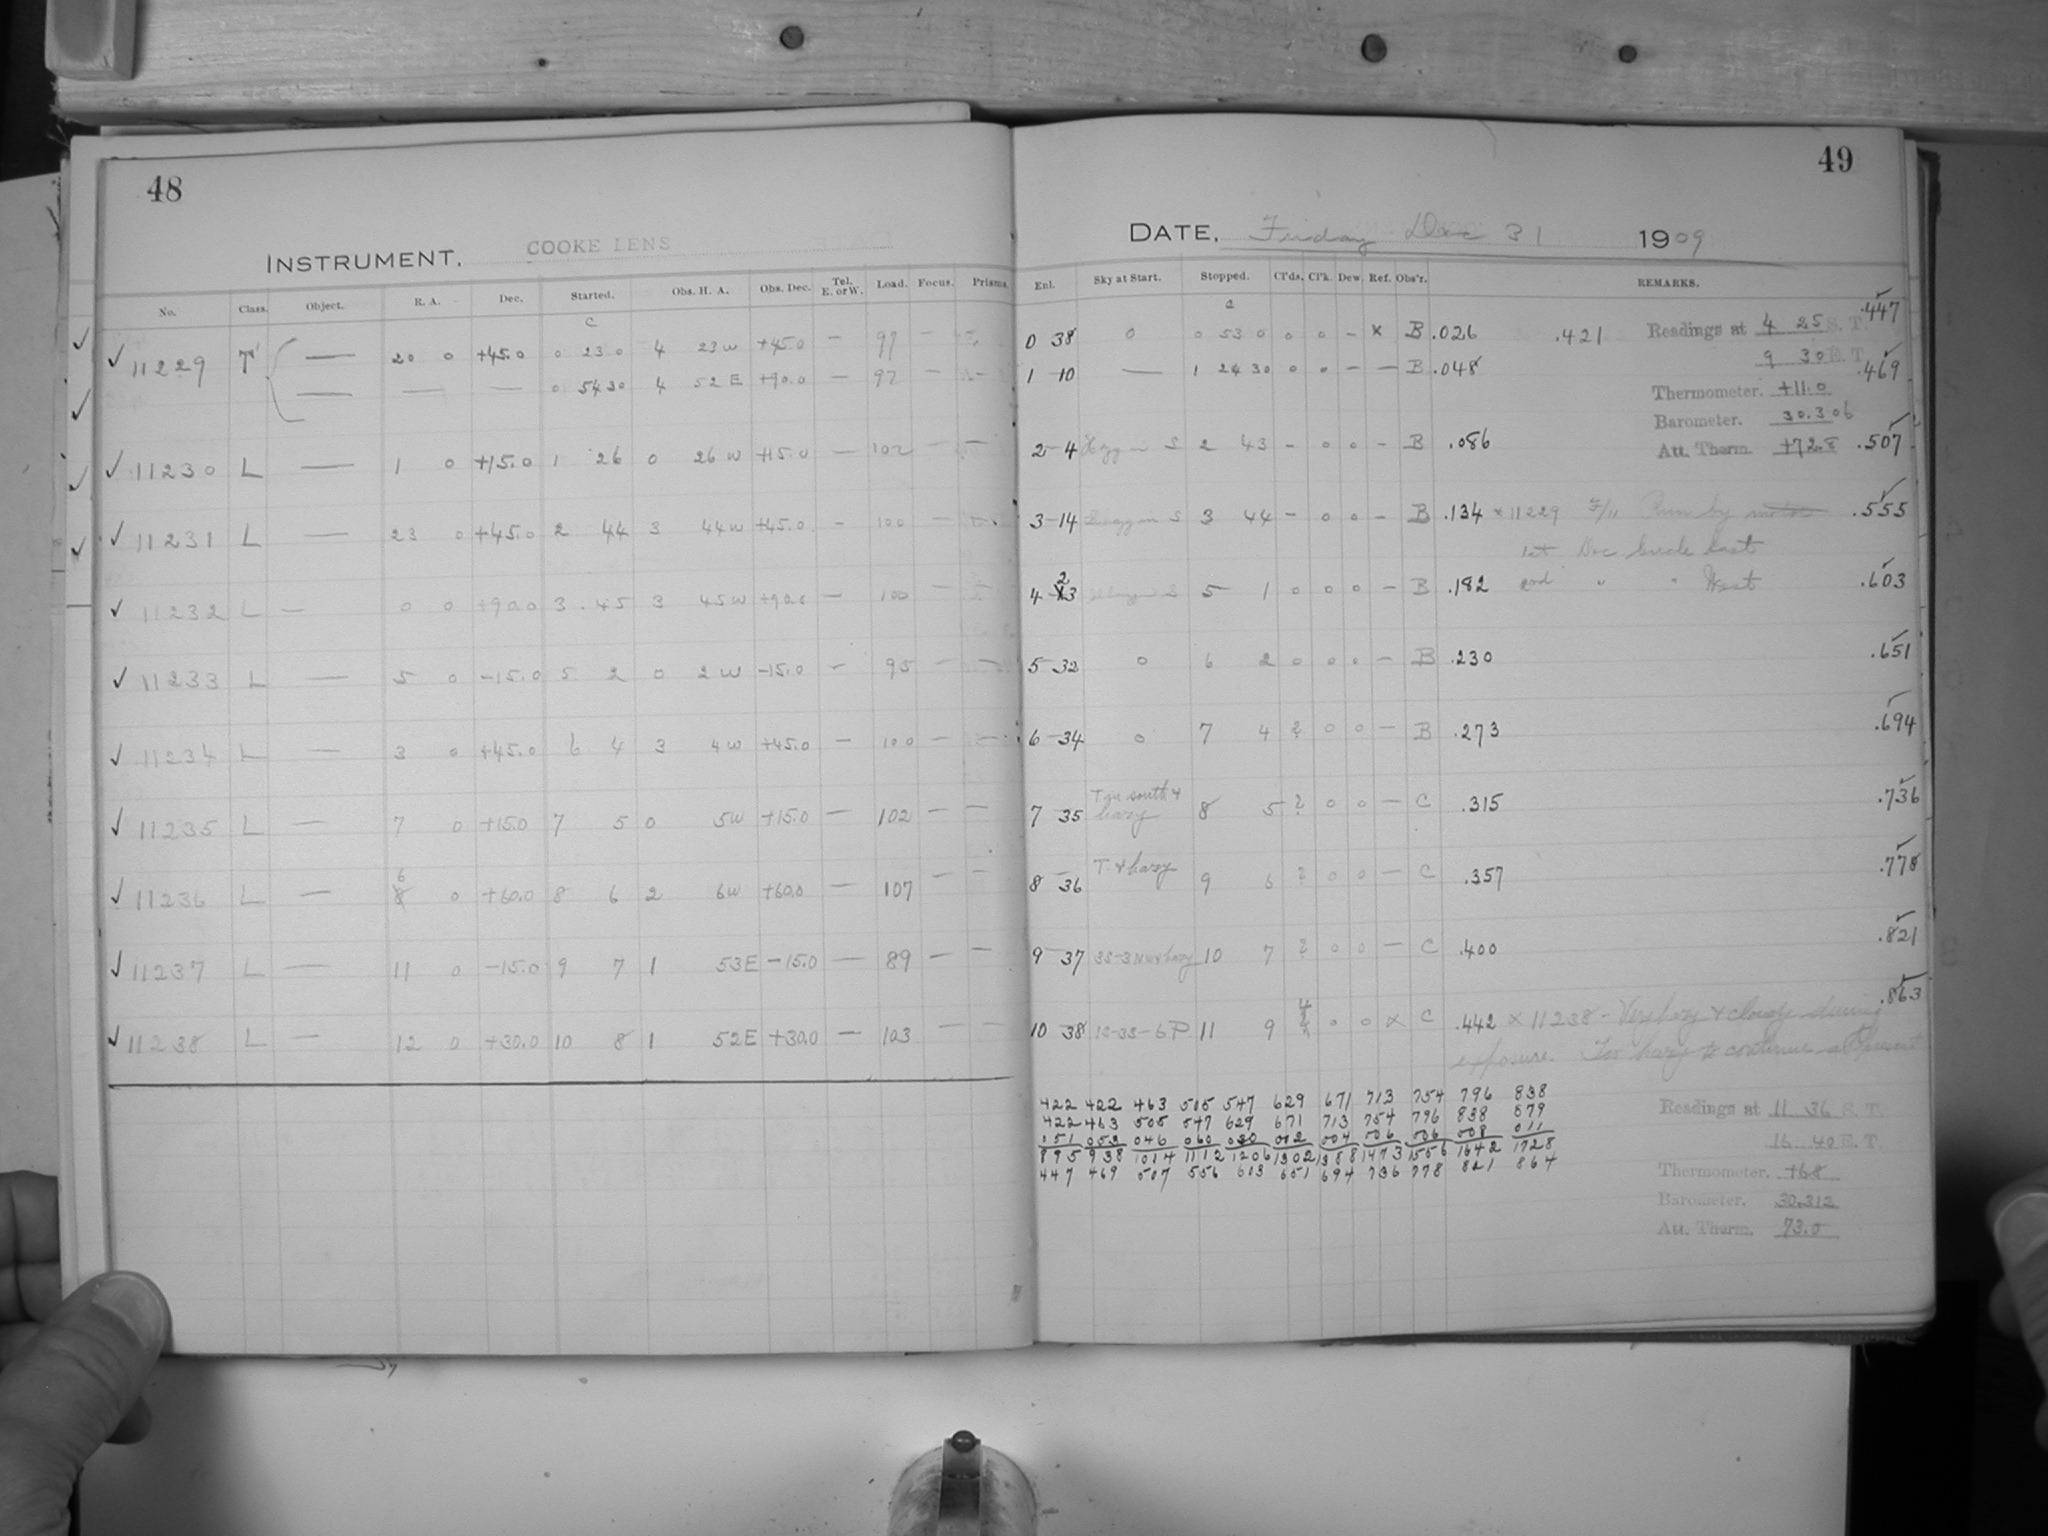 48
INSTRUMENT. COOKE LENS
No. Class. Object. R. A. Dec. Started. Obs. H. A. Obs. Dec. Tel. E. or W. Load. Focus. Prisms.
c
✓ 11229 T' — 20 0 +45.0 0 23 0 4 23 W +45.0 — 97 —
— — — 0 54 30 4 52 E +90.0 — 97 — —
✓ 11230 L — 1 0 +15.0 1 26 0 26 W +15.0 — 102 — —
✓ 11231 L — 23 0 +45.0 2 44 3 44 W +45.0 - 100 — —
✓ 11232 L — 0 0 +90.0 3 45 3 45 W +90.0 — 100 — —
✓ 11233 L — 5 0 -15.0 5 2 0 2 W -15.0 - 95 — —
✓ 11234 L — 3 0 +45.0 6 4 3 4 W +45.0 — 100 — —
✓ 11235 L — 7 0 +15.0 7 5 0 5W +15.0 — 102 — —
6
✓ 11236 L — 8 0 +60.0 8 6 2 6W +60.0 — 107 — —
✓ 11237 L — 11 0 -15.0 9 7 1 53E -15.0 — 89 — —
✓ 11238 L — 12 0 +30.0 10 8 1 52E +30.0 — 103 — —
49
DATE, Friday Dec 31 1909
Enl. Sky at Start. Stopped. Cl'ds. Cl'k. Dew. Ref. Obs'r. REMARKS.
c
0 38 0 0 53 0 0 0 - x B .026 .421 Readings at 4 25 S. T. .447
9 30 E. T.
1 10 — 1 24 30 0 0 — — B .048 .469
Thermometer. +11.0
Barometer. 30.306
2-4 S 2 43 - 0 0 - B .086 Att. Therm. +72.8 .507
3-14 S 3 44 - 0 0 - B .134 x 11229 F/11 Run by motor .555
1st Dec circle East
2
4-13 S 5 1 0 0 0 - B .182 2nd " " West .603
5-32 0 6 2 0 0 0 - B .230 .651
6-34 0 7 4 2 0 0 - B .273 .694
7 35 T in south + hazy 8 5 2 0 0 — C .315 .736
8 36 T. + hazy 9 6 2 0 0 — C .357 .778
9-37 hazy 10 7 2 0 0 — C .400 .821
10-38 11 9 4 0 0 x C .442 x 11238 - Very hazy + cloudy during .863
exposure. Too hazy to continue at present
422 422 463 505 547 629 671 713 754 796 838
422 463 505 547 629 671 713 754 796 838 879
051 053 046 060 030 002 004 006 006 008 011
895 938 1014 1112 1206 1302 1388 1473 1556 1642 1728
447 469 507 556 603 651 694 736 778 821 864
Readings at 11 36 S. T.
16 40 E. T.
Thermometer. +6.8
Barometer. 30.312
Att. Therm. 73.0